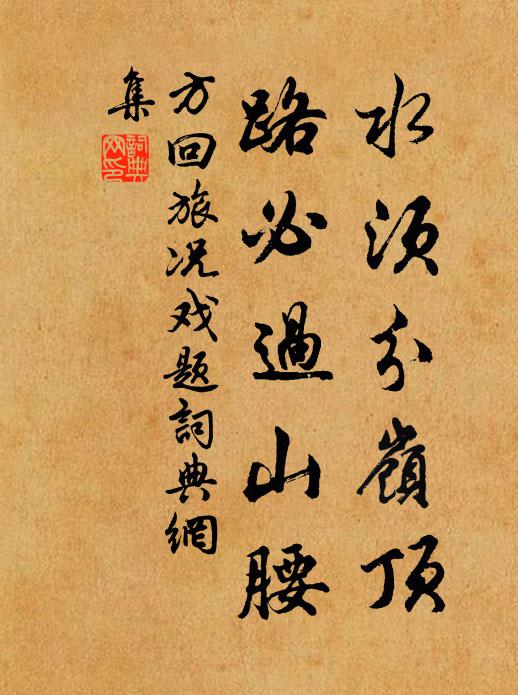 水须分嶺顶
路必過山腰
方回旅况戏题詞典網
集
詞典網印